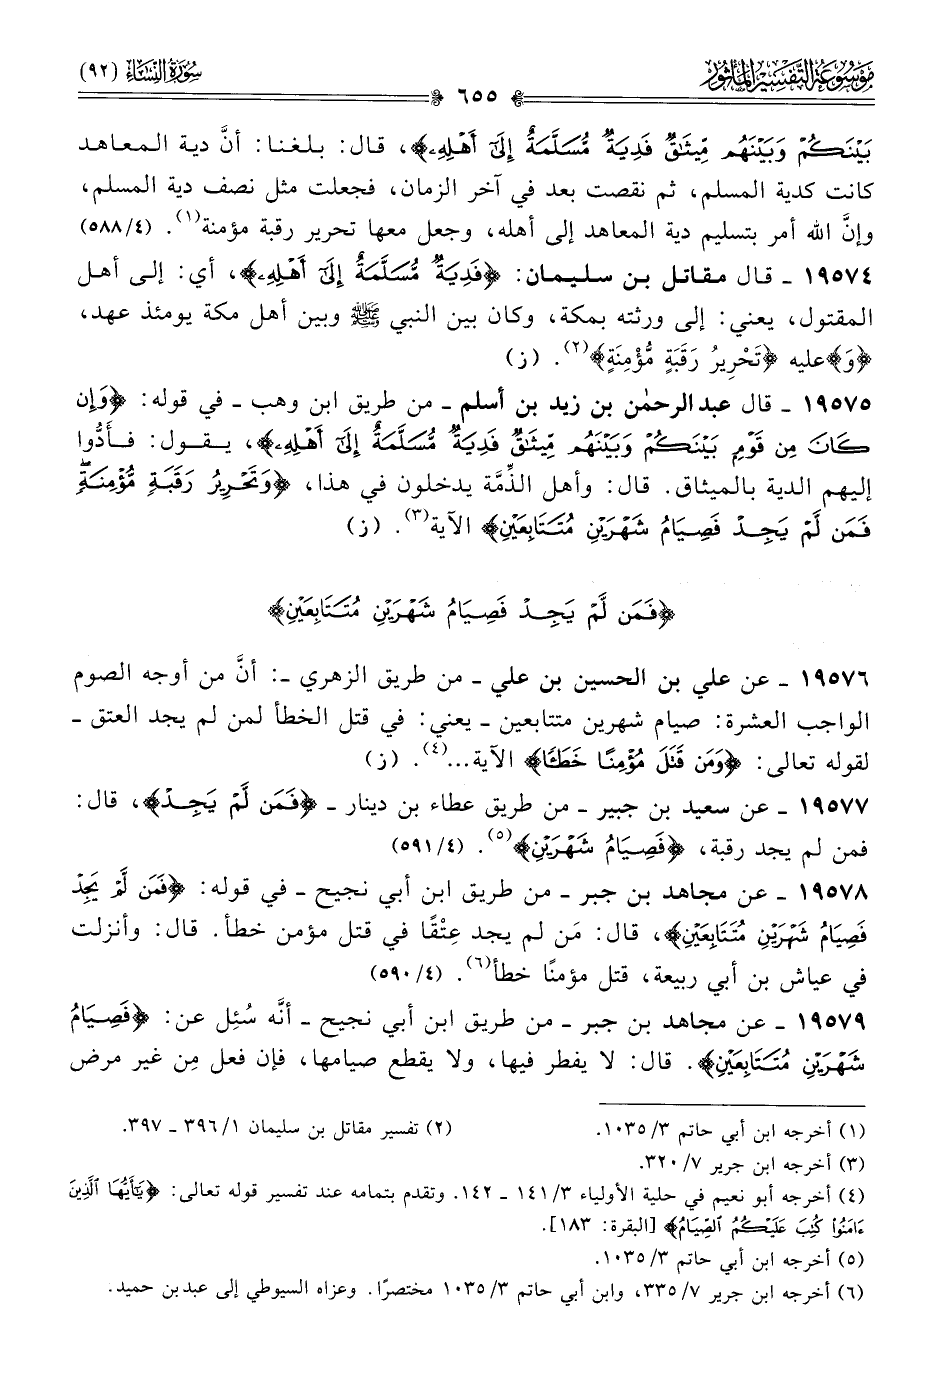 مَوْسُوعَة التَّفْسِير المَأْثُور
٦٥٥
سُورَةُ النِّسَاءِ (٩٢)
بَيْنَكُمْ وَبَيْنَهُم مِّيثَٰقٌ فَدِيَةٌ مُّسَلَّمَةٌ إِلَىٰٓ أَهْلِهِۦ﴾، قال: بلغنا: أنَّ دية المعاهد
كانت كدية المسلم، ثم نقصت بعد في آخر الزمان، فجعلت مثل نصف دية المسلم،
وإنَّ الله أمر بتسليم دية المعاهد إلى أهله، وجعل معها تحرير رقبة مؤمنة(١). (٥٨٨/٤)
١٩٥٧٤ ـ قال مقاتل بن سليمان: ﴿فَدِيَةٌ مُّسَلَّمَةٌ إِلَىٰٓ أَهْلِهِۦ﴾، أي: إلى أهل
المقتول، يعني: إلى ورثته بمكة، وكان بين النبي ﷺ وبين أهل مكة يومئذ عهد،
﴿وَ﴾عليه ﴿تَحْرِيرُ رَقَبَةٍ مُّؤْمِنَةٍ﴾(٢). (ز)
١٩٥٧٥ ـ قال عبد الرحمٰن بن زيد بن أسلم ـ من طريق ابن وهب ـ في قوله: ﴿وَإِن
كَانَ مِن قَوْمٍۭ بَيْنَكُمْ وَبَيْنَهُم مِّيثَٰقٌ فَدِيَةٌ مُّسَلَّمَةٌ إِلَىٰٓ أَهْلِهِۦ﴾، يقول: فأَدُّوا
إليهم الدية بالميثاق. قال: وأهل الذِّمَّة يدخلون في هذا، ﴿وَتَحْرِيرُ رَقَبَةٍ مُّؤْمِنَةٍۖ
فَمَن لَّمْ يَجِدْ فَصِيَامُ شَهْرَيْنِ مُتَتَابِعَيْنِ﴾ الآية(٣). (ز)
﴿فَمَن لَّمْ يَجِدْ فَصِيَامُ شَهْرَيْنِ مُتَتَابِعَيْنِ﴾
١٩٥٧٦ ـ عن علي بن الحسين بن علي ـ من طريق الزهري ـ: أنَّ من أوجه الصوم
الواجب العشرة: صيام شهرين متتابعين ـ يعني: في قتل الخطأ لمن لم يجد العتق ـ
لقوله تعالى: ﴿وَمَن قَتَلَ مُؤْمِنًا خَطَـًٔا﴾ الآية...(٤). (ز)
١٩٥٧٧ ـ عن سعيد بن جبير ـ من طريق عطاء بن دينار ـ ﴿فَمَن لَّمْ يَجِدْ﴾، قال:
فمن لم يجد رقبة، ﴿فَصِيَامُ شَهْرَيْنِ﴾(٥). (٥٩١/٤)
١٩٥٧٨ ـ عن مجاهد بن جبر ـ من طريق ابن أبي نجيح ـ في قوله: ﴿فَمَن لَّمْ يَجِدْ
فَصِيَامُ شَهْرَيْنِ مُتَتَابِعَيْنِ﴾، قال: مَن لم يجد عِتْقًا في قتل مؤمن خطأ. قال: وأنزلت
في عياش بن أبي ربيعة، قتل مؤمنًا خطأ(٦). (٥٩٠/٤)
١٩٥٧٩ ـ عن مجاهد بن جبر ـ من طريق ابن أبي نجيح ـ أنَّه سُئِل عن: ﴿فَصِيَامُ
شَهْرَيْنِ مُتَتَابِعَيْنِ﴾. قال: لا يفطر فيها، ولا يقطع صيامها، فإن فعل مِن غير مرض
(١) أخرجه ابن أبي حاتم ١٠٣٥/٣. (٢) تفسير مقاتل بن سليمان ٣٩٦/١ ـ ٣٩٧.
(٣) أخرجه ابن جرير ٣٢٠/٧.
(٤) أخرجه أبو نعيم في حلية الأولياء ١٤١/٣ ـ ١٤٢. وتقدم بتمامه عند تفسير قوله تعالى: ﴿يَٰٓأَيُّهَا ٱلَّذِينَ
ءَامَنُوا كُتِبَ عَلَيْكُمُ ٱلصِّيَامُ﴾ [البقرة: ١٨٣].
(٥) أخرجه ابن أبي حاتم ١٠٣٥/٣.
(٦) أخرجه ابن جرير ٣٣٥/٧، وابن أبي حاتم ١٠٣٥/٣ مختصرًا. وعزاه السيوطي إلى عبد بن حميد.